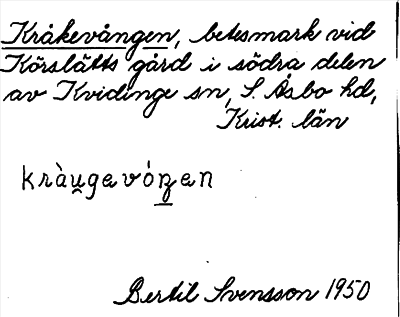 Kråkevången, betesmark vid
Körslätts gård i södra delen
av Kvidinge sn, S. Åsbo hd,
Krist. län
kràu̯gevóŋen
Bertil Svensson 1950